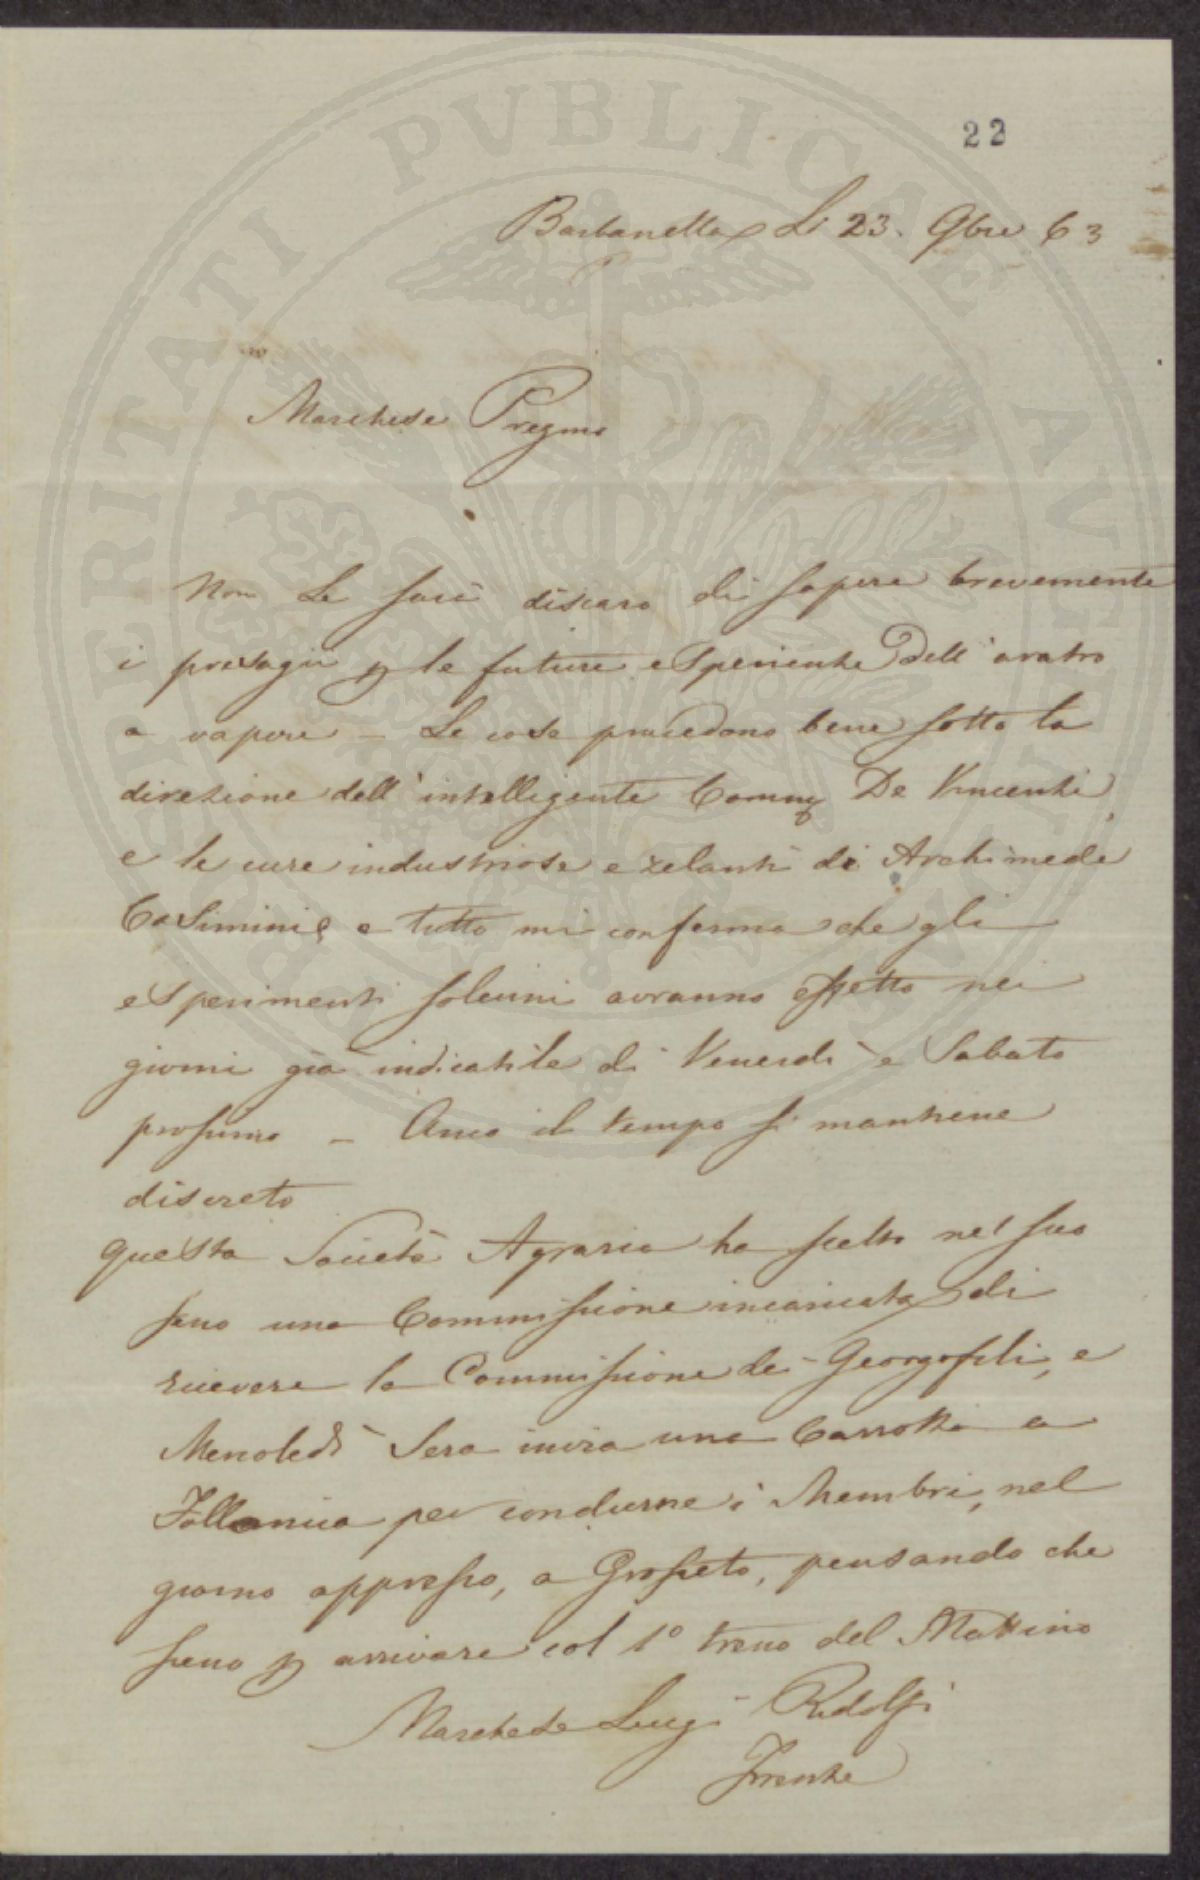 22
Barbanella Li 23. 9bre 63
Marchese Pregmo
Non Le sarà discaro di sapere brevemente
i presagi p le future esperienze Dell' aratro
a vapore – Le cose procedono bene sotto la
direzione dell' intelligente Comm De Vincenzi,
e le cure industriose e zelanti di Archimede
Cosimini, e tutto mi conferma che gli
esperimenti solenni avranno effetto nei
giorni già di Venerdì e Sabato
prossimo – Anco il tempo si mantiene
discreto
questa Società Agraria ha scelto nel suo
seno una Commissione incaricata di
ricevere la Commissione dei Georgofili, e
Mercoledì Sera invia una Carrozza a
Follonica per condurne i Membri, nel
giorno appresso, a Grosseto, pensando che
sieno p arrivare col 1° treno del Mattino
Marchese Luigi Ridolfi
Firenze
PROSPERITATI PVBLICAE AVGENDAE